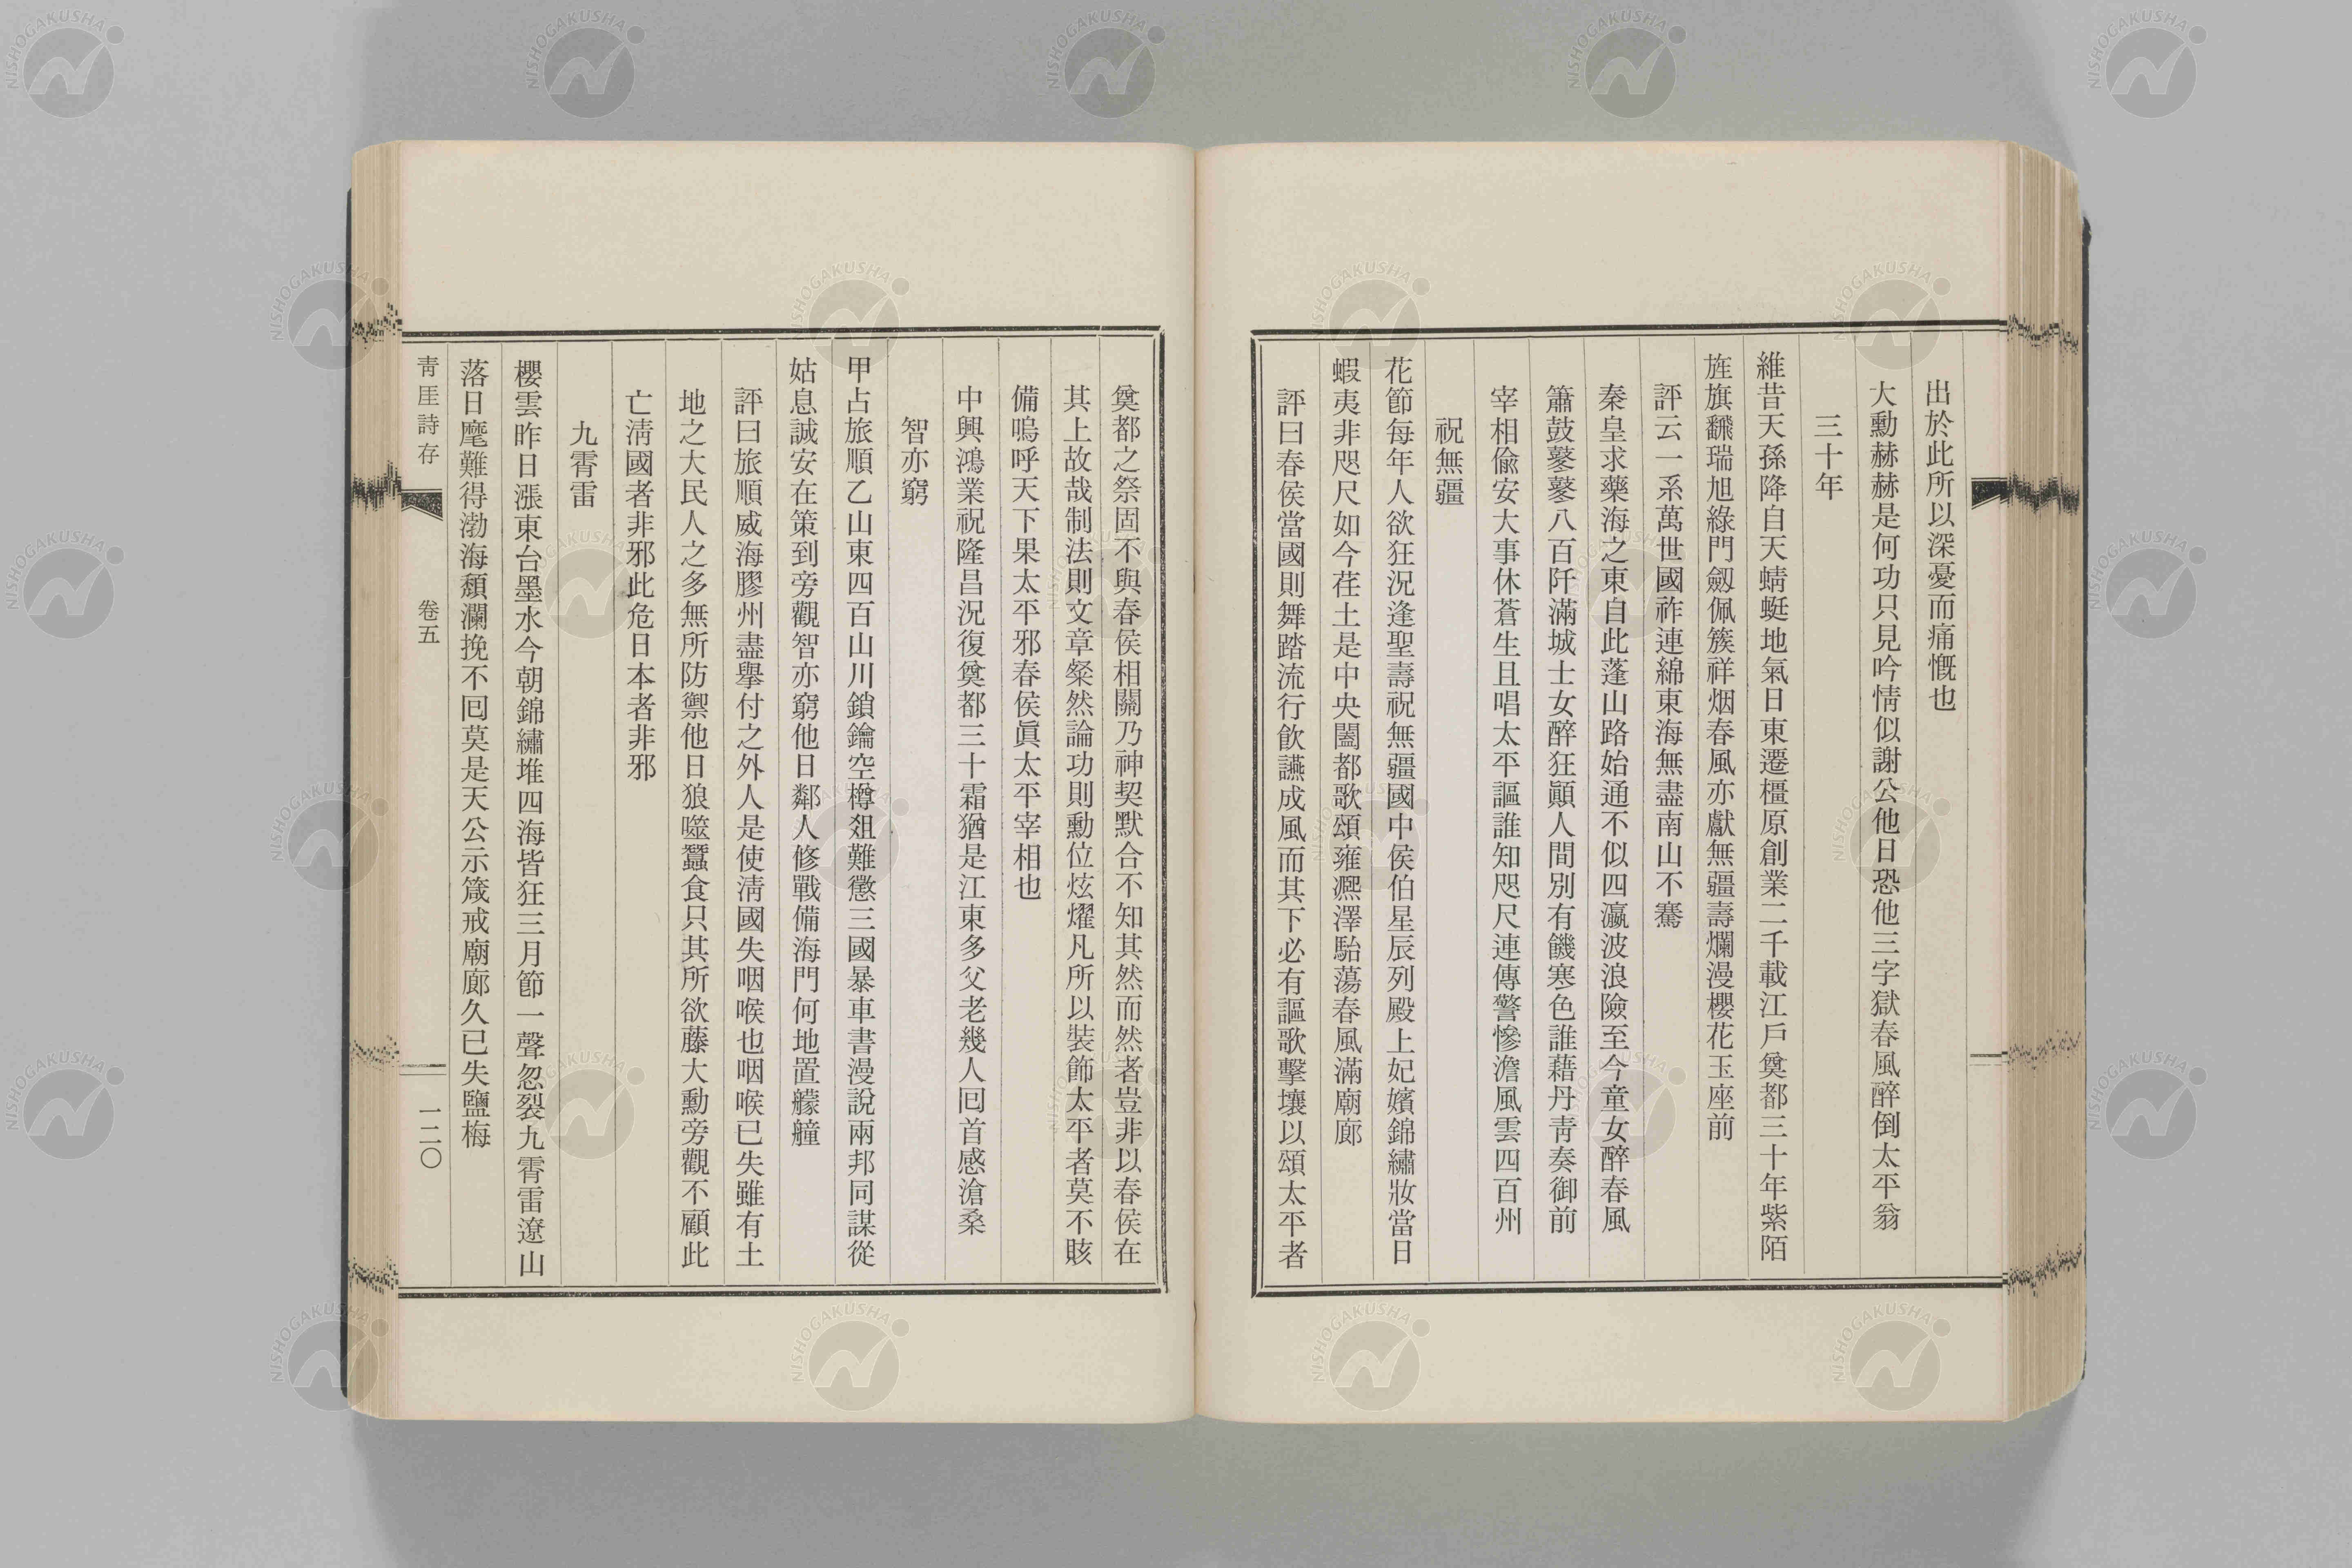 出於此所以深憂而痛慨也
大勳赫赫是何功只見吟情似謝公他日恐他三字獄春風醉倒太平翁
三十年
維昔天孫降自天蜻蜓地氣日東遷橿原創業二千載江戶奠都三十年紫陌
旌旗飜瑞旭綠門劔佩簇祥烟春風亦獻無疆壽爛漫櫻花玉座前
評云一系萬世國祚連綿東海無盡南山不騫
秦皇求藥海之東自此蓬山路始通不似四瀛波浪險至今童女醉春風
簫鼓鼕鼕八百阡滿城士女醉狂顚人間別有饑寒色誰藉丹靑奏御前
宰相偸安大事休蒼生且唱太平謳誰知咫尺連傳警慘澹風雲四百州
祝無疆
花節每年人欲狂況逢聖壽祝無疆國中侯伯星辰列殿上妃嬪錦繡妝當日
蝦夷非咫尺如今荏土是中央闔都歌頌雍凞澤駘蕩春風滿廟廊
評曰春侯當國則舞踏流行飮讌成風而其下必有謳歌擊壤以頌太平者
奠都之祭固不與春侯相關乃神契默合不知其然而然者豈非以春侯在
其上故哉制法則文章粲然論功則勳位炫燿凡所以裝飾太平者莫不賅
備嗚呼天下果太平邪春侯眞太平宰相也
中興鴻業祝隆昌況復奠都三十霜猶是江東多父老幾人囘首感滄桑
智亦窮
甲占旅順乙山東四百山川鎖鑰空樽爼難懲三國暴車書漫說兩邦同謀從
姑息誠安在策到旁觀智亦窮他日鄰人修戰備海門何地置艨艟
評曰旅順威海膠州盡擧付之外人是使淸國失咽喉也咽喉已失雖有土
地之大民人之多無所防禦他日狼噬蠶食只其所欲藤大勳旁觀不顧此
亡淸國者非邪此危日本者非邪
九霄雷
櫻雲昨日漲東台墨水今朝錦繡堆四海皆狂三月節一聲忽裂九霄雷遼山
落日麾難得渤海頹瀾挽不囘莫是天公示箴戒廟廊久已失鹽梅
靑厓詩存
卷五
一二〇
NISHOGAKUSHA